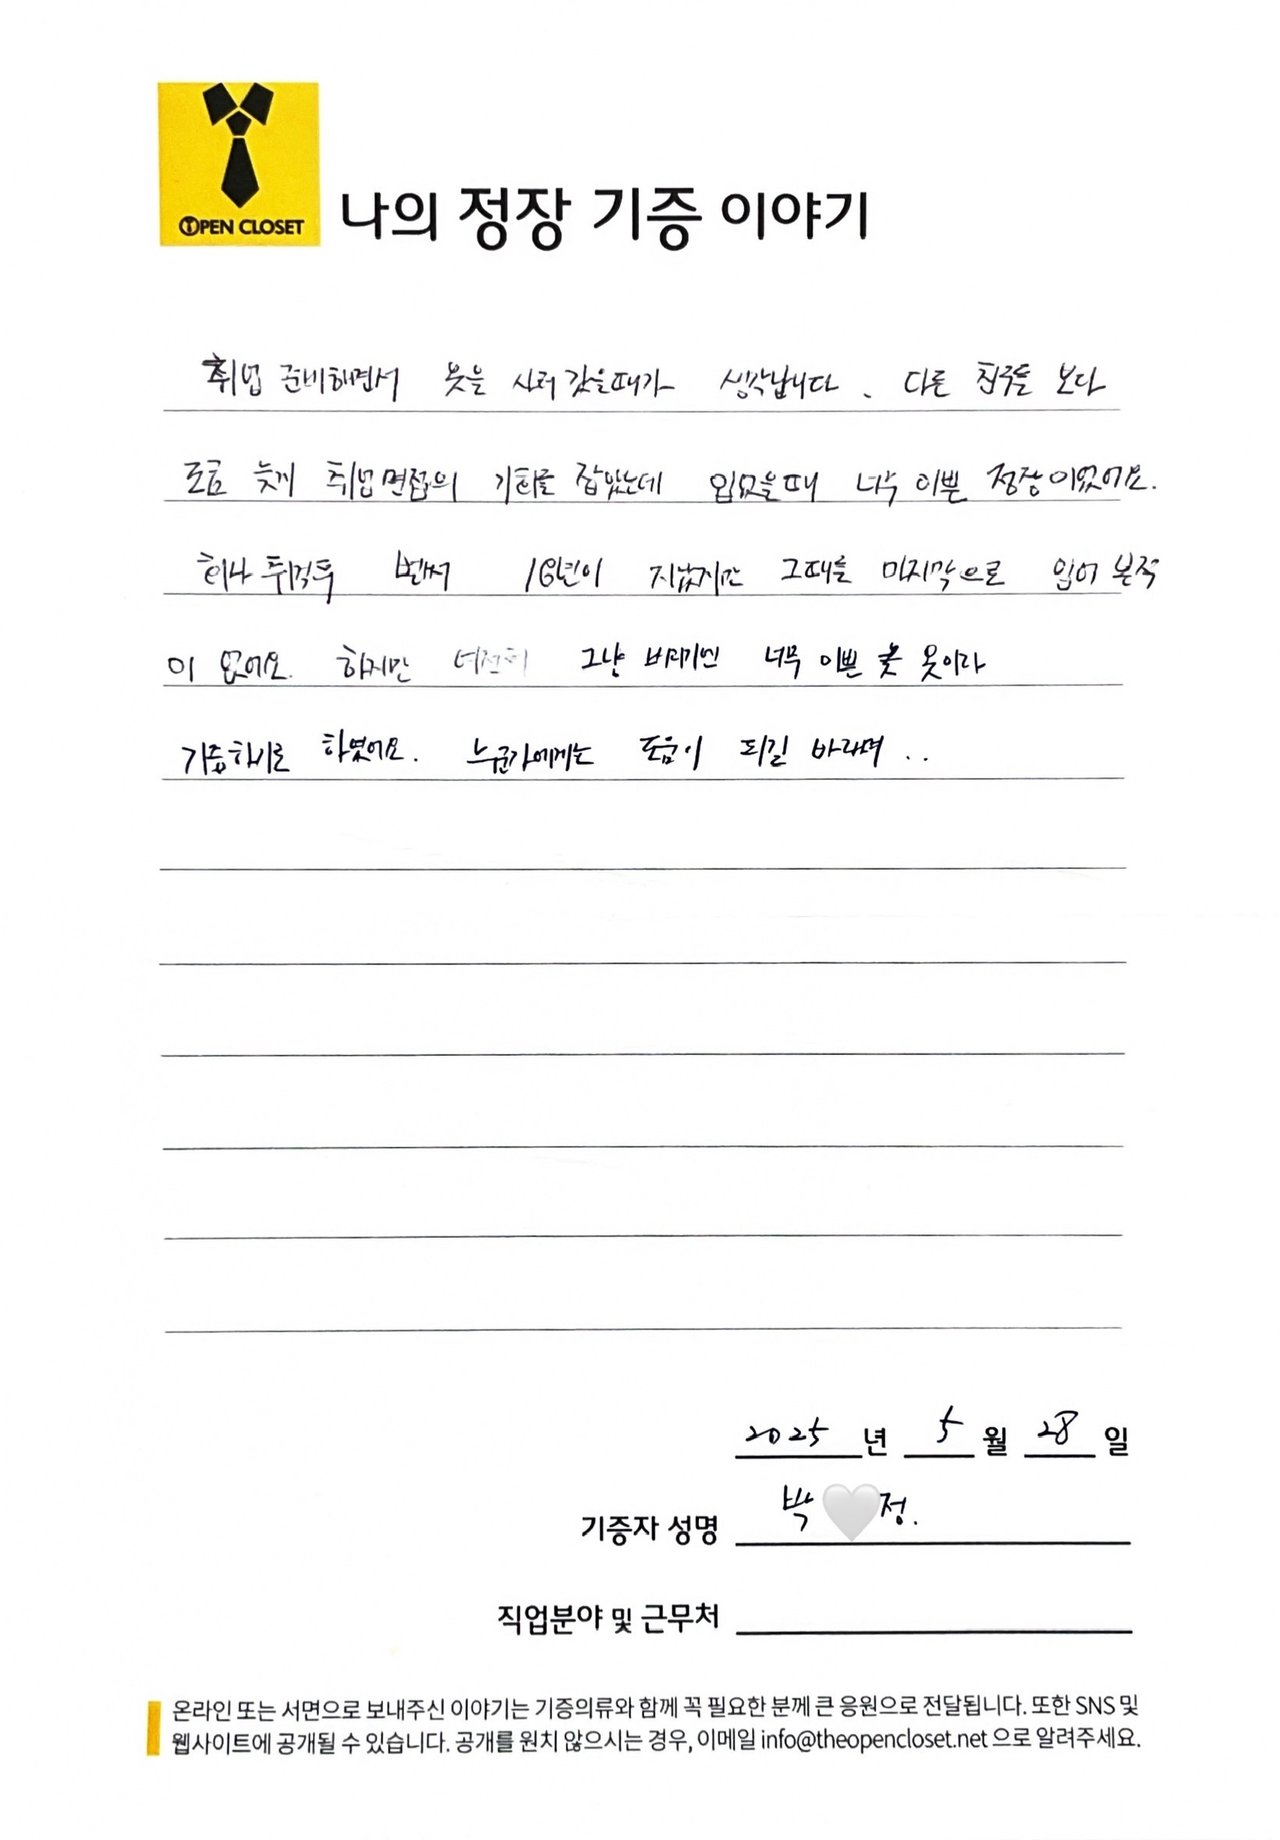 OPEN CLOSET
나의 정장 기증 이야기
취업 준비하면서 옷을 사러 갔을때가 생각납니다. 다른 친구들 보다
조금 늦게 취업면접의 기회를 잡았는데 입었을때 너무 이쁜 정장이었어요.
허나 취직후 벌써 16년이 지났지만 그때를 마지막으로 입어 본적
이 없어요. 하지만 여전히 그냥 버리기엔 너무 이쁜 옷이라
기증하기로 하였어요. 누군가에게는 도움이 되길 바라며..
2025 년 5 월 28 일
기증자 성명 박 정.
직업분야 및 근무처
온라인 또는 서면으로 보내주신 이야기는 기증의류와 함께 꼭 필요한 분께 큰 응원으로 전달됩니다. 또한 SNS 및
웹사이트에 공개될 수 있습니다. 공개를 원치 않으시는 경우, 이메일 info@theopencloset.net 으로 알려주세요.